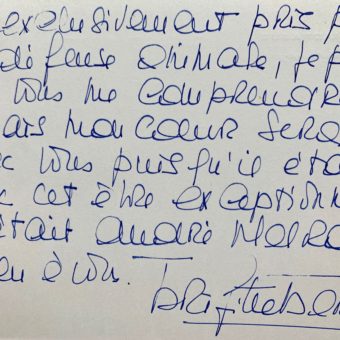 exclusivement pris p
défense animale, je p
vous me comprendre
ais mon coeur sera
c vous puisqu'il était
c cet être exceptionn
était André Malra
en à vous.
Brigitte Bar